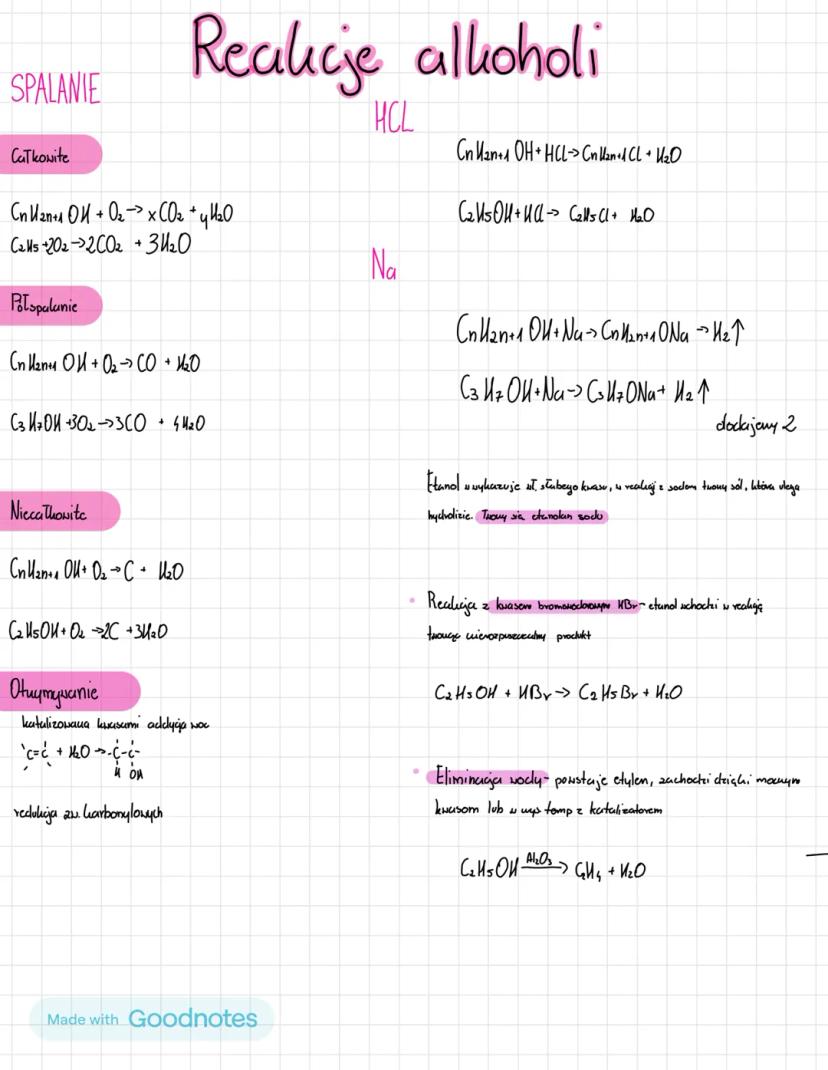 Reakcje alkoholi
SPALANIE
Całkowite
CnH2n+1 OH + O2 → xCO2 + yH2O
C2H5 +2O2 → 2CO2 + 3H2O
Półspalanie
CnH2n+1 OH + O2 → CO + H2O
C3H7OH +3O2 → 3CO + 4H2O
Niecałkowite
CnH2n+1 OH + O2 → C + H2O
C2H5OH + O2 → 2C + 3H2O
Otrzymywanie
katalizowana kwasami addycja
C=C + H2O → -C-C-
H OH
redukcja zw. karbonylowych
HCL
CnH2n+1 OH + HCl → CnH2n+1Cl + H2O
C2H5OH + HCl → C2H5Cl + H2O
Na
CnH2n+1 OH + Na → CnH2n+1ONa → H2↑
C3H7OH + Na → C3H7ONa + H2↑
dodajemy 2
Etanol wykazuje wł. słabego kwasu, w reakcji z sodem tworzy sól, która ulega
hydrolizie. Tworzy się etanolan sodu
• Reakcja z kwasem bromowodorowym HBr - etanol wchodzi w reakcję
tworząc nierozpuszczalny produkt
C2H5OH + HBr → C2H5Br + H2O
• Eliminacja wody - powstaje etylen, zachodzi dzięki mocnym
kwasom lub w wys temp z katalizatorem
C2H5OH Al2O3→ C2H4 + H2O
Made with Goodnotes